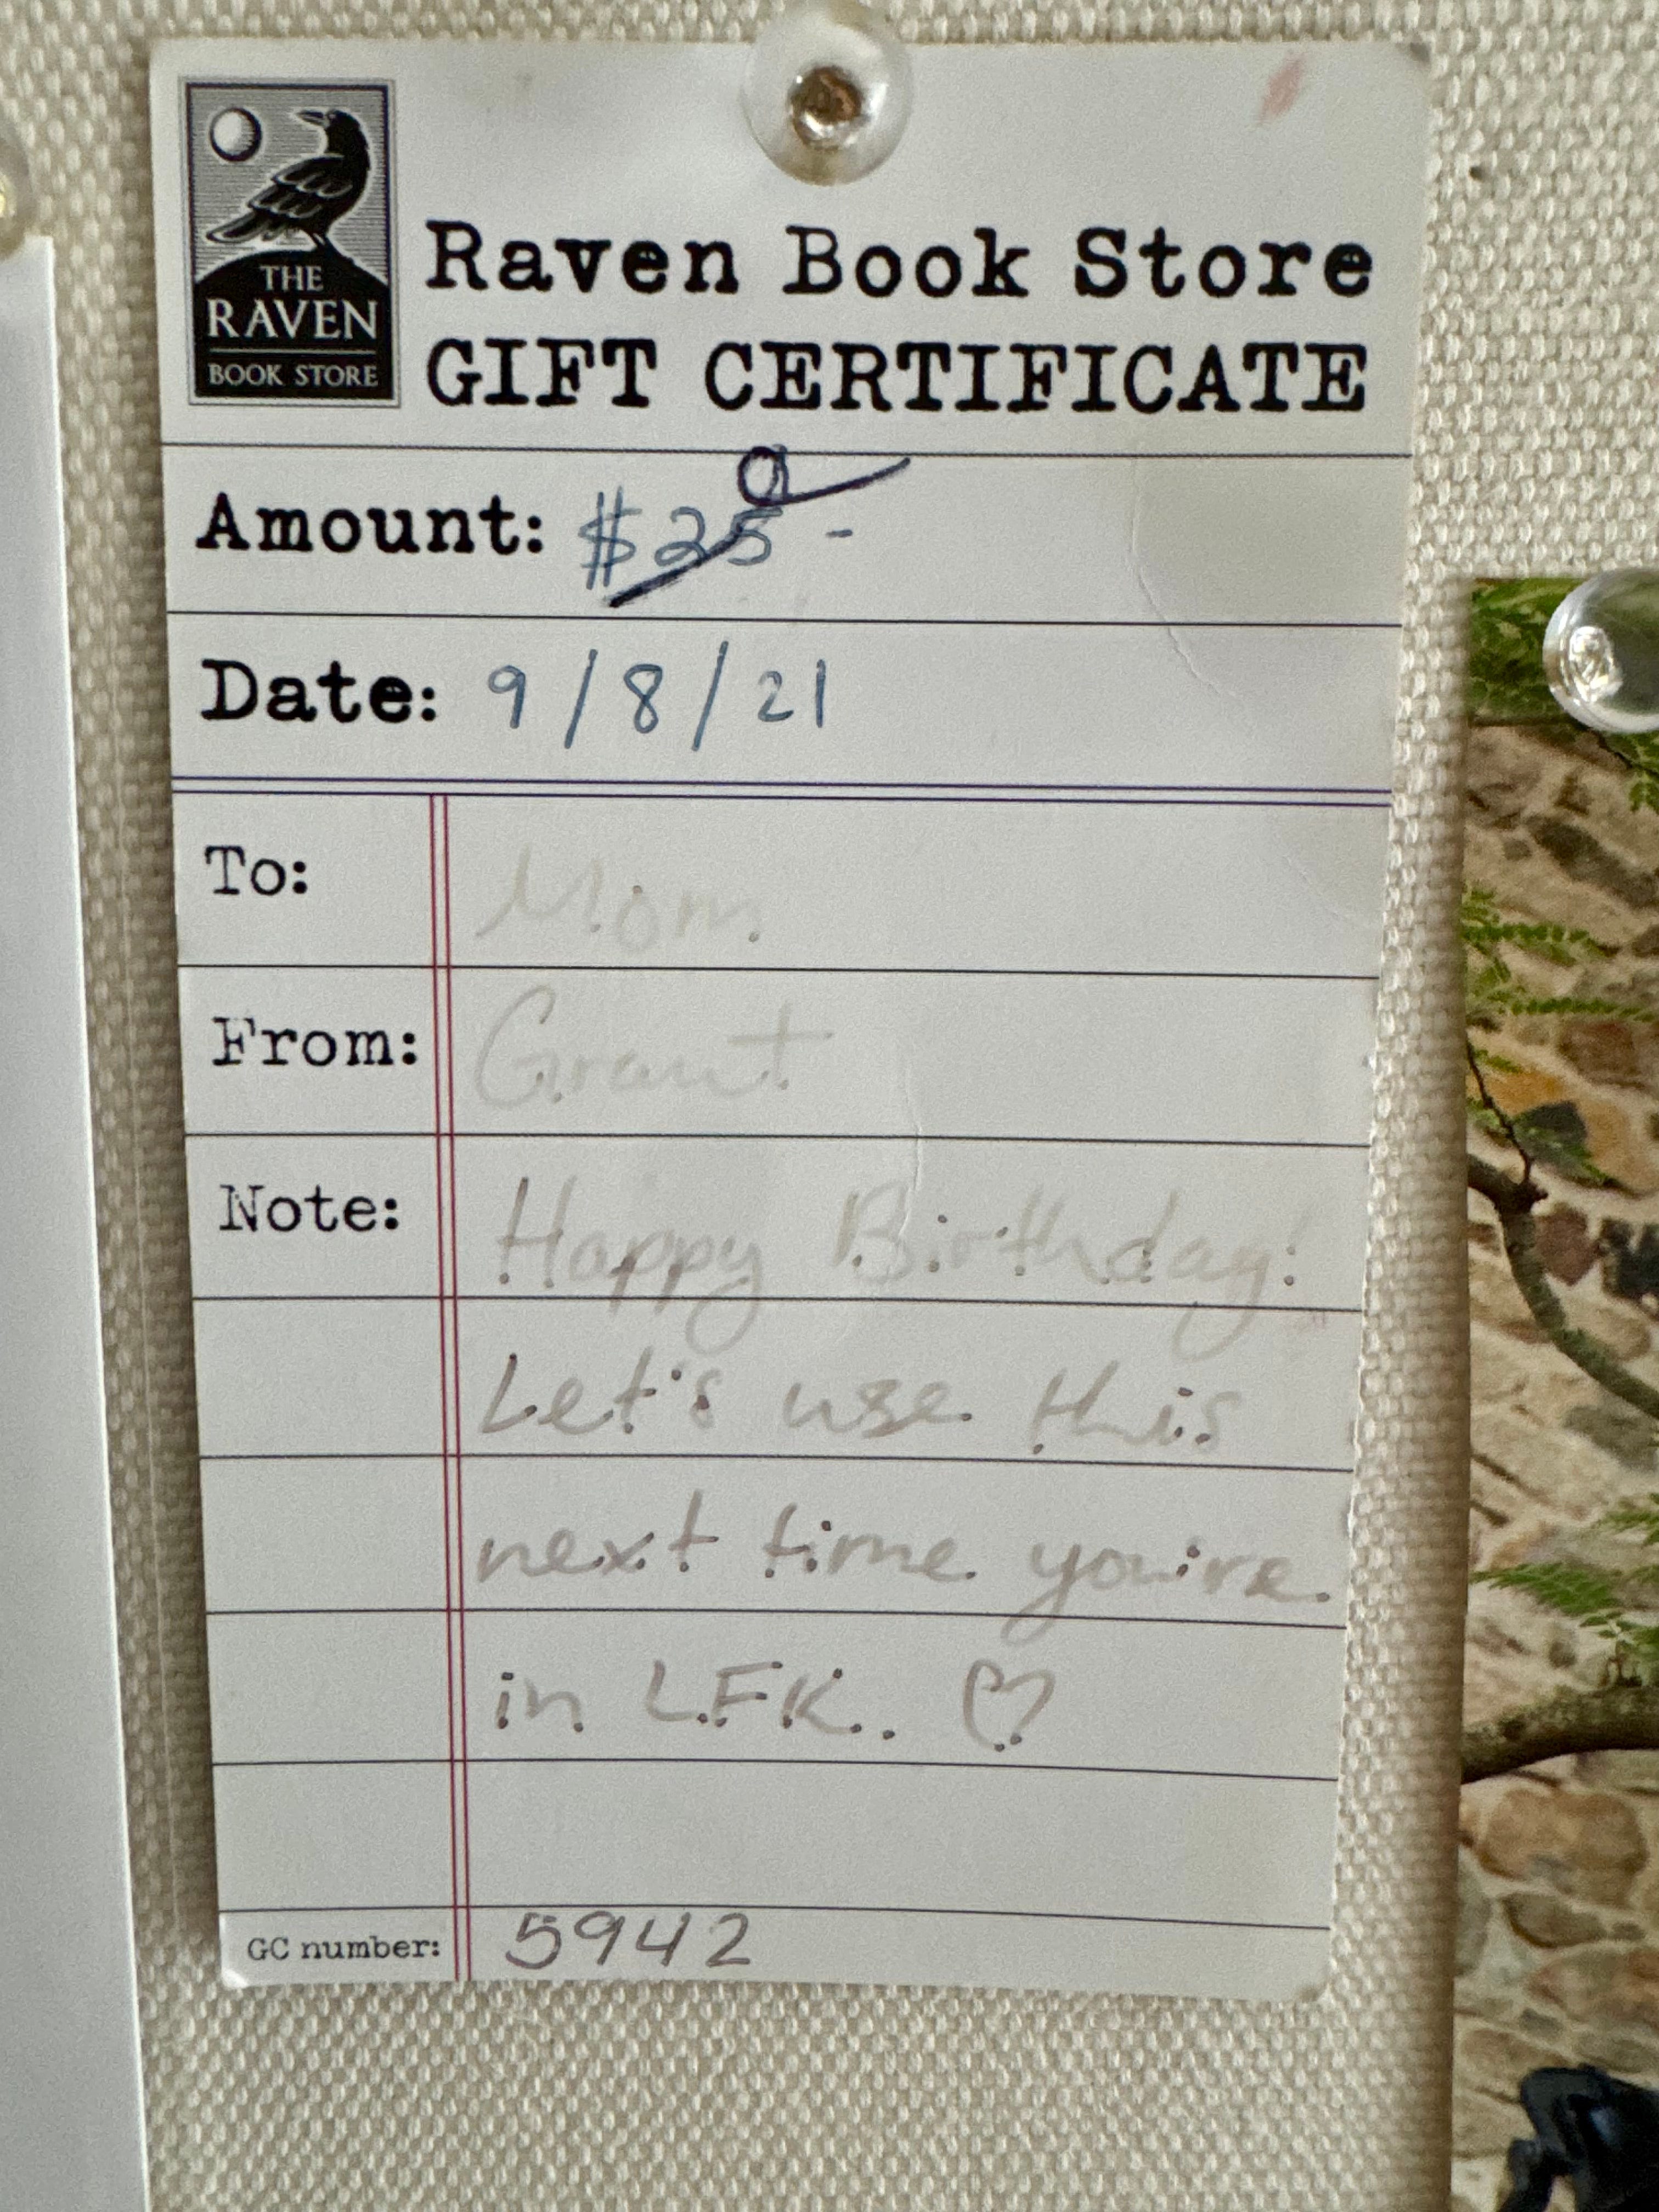 THE
RAVEN
BOOK STORE
Raven Book Store
GIFT CERTIFICATE
Amount: $25 -
Date: 9/8/21
To: Mom
From: Grant
Note: Happy Birthday!
Let's use this
next time you're
in LFK. ♡
GC number: 5942